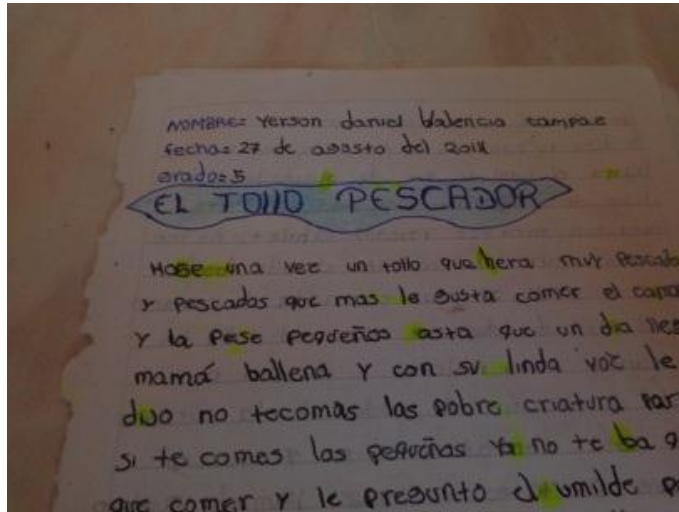 NOMBRE= Yerson daniel Valencia
fecha= 27 de agosto del
grado= 5
EL TOLLO PESCADOR
una vez un tollo que hera muy
y pescados que mas le gusta comer el
y la pese pequeños asta que un dia
mamá ballena y con su linda voz le
dijo no tecomas las pobre criatura
si te comes las pequeñas ya no te ba
que comer y le pregunto el umilde